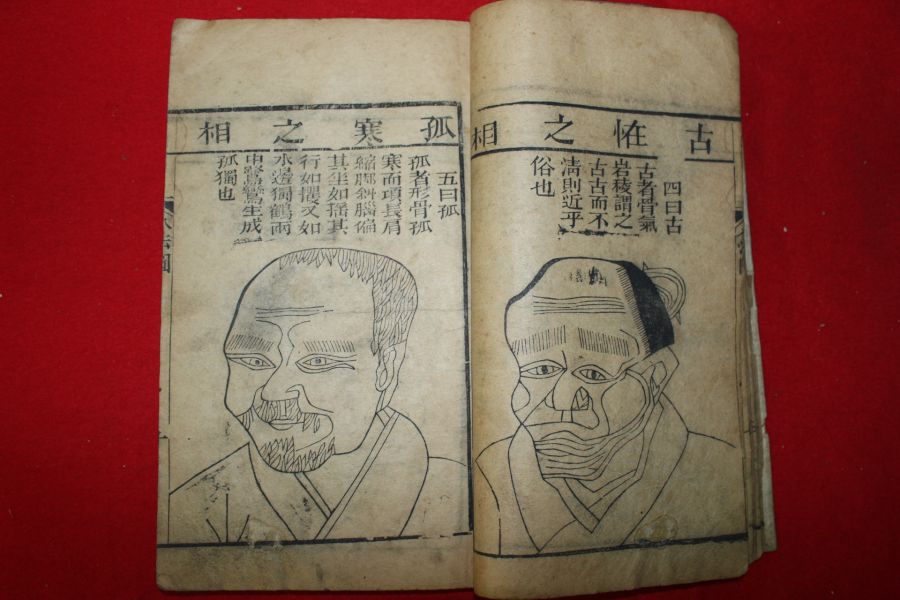 古恠之相
四曰古
古者骨氣
岩稜謂之
古古而不
淸則近乎
俗也
孤寒之相
五曰孤
孤者形骨孤
寒而項長肩
縮脚斜腦偏
其坐如摇其
行如攫又如
水邊獨鶴雨
中鷺鷥生成
孤獨也